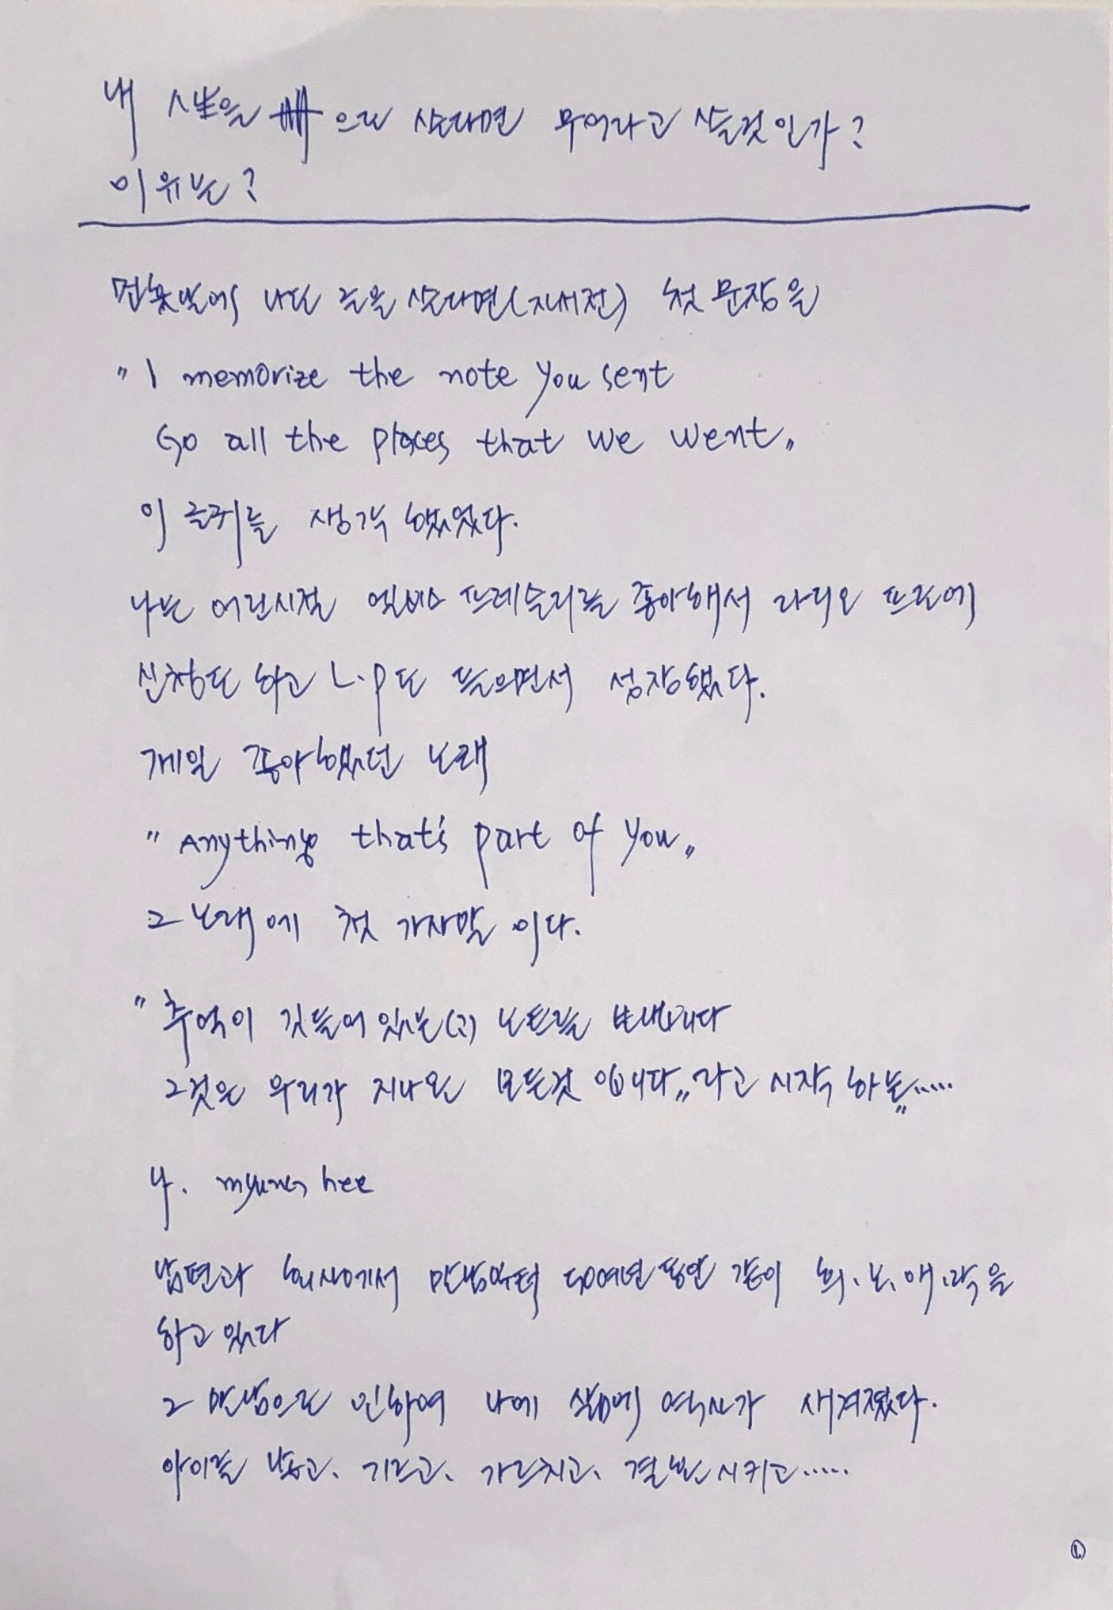 내 人生을 으로 쓴다면 무어라고 쓸것인가?
이유는?
먼훗날에 나도 글을 쓴다면(자서전) 첫 문장을
"I memorize the note you sent
Go all the places that we went"
이 글귀를 생각 했었다.
나는 어린시절 엘비스 프레슬리를 좋아해서 라디오 프로에
신청도 하고 L.P도 들으면서 성장했다.
제일 좋아했던 노래
"Anything that's part of you"
그 노래에 첫 가사말 이다.
"추억이 깃들어있는(고) 노트를 보내오니다
그것은 우리가 지나온 모든것 입니다" 라고 시작 하는"....
나. myung hee
남편과 회사에서 만남부터 50여년 동안 같이 희.노.애.락을
하고 있다
그 만남으로 인하여 나에 삶에 역사가 새겨졌다.
아이를 낳고, 기르고, 가르치고, 결혼시키고.....
①